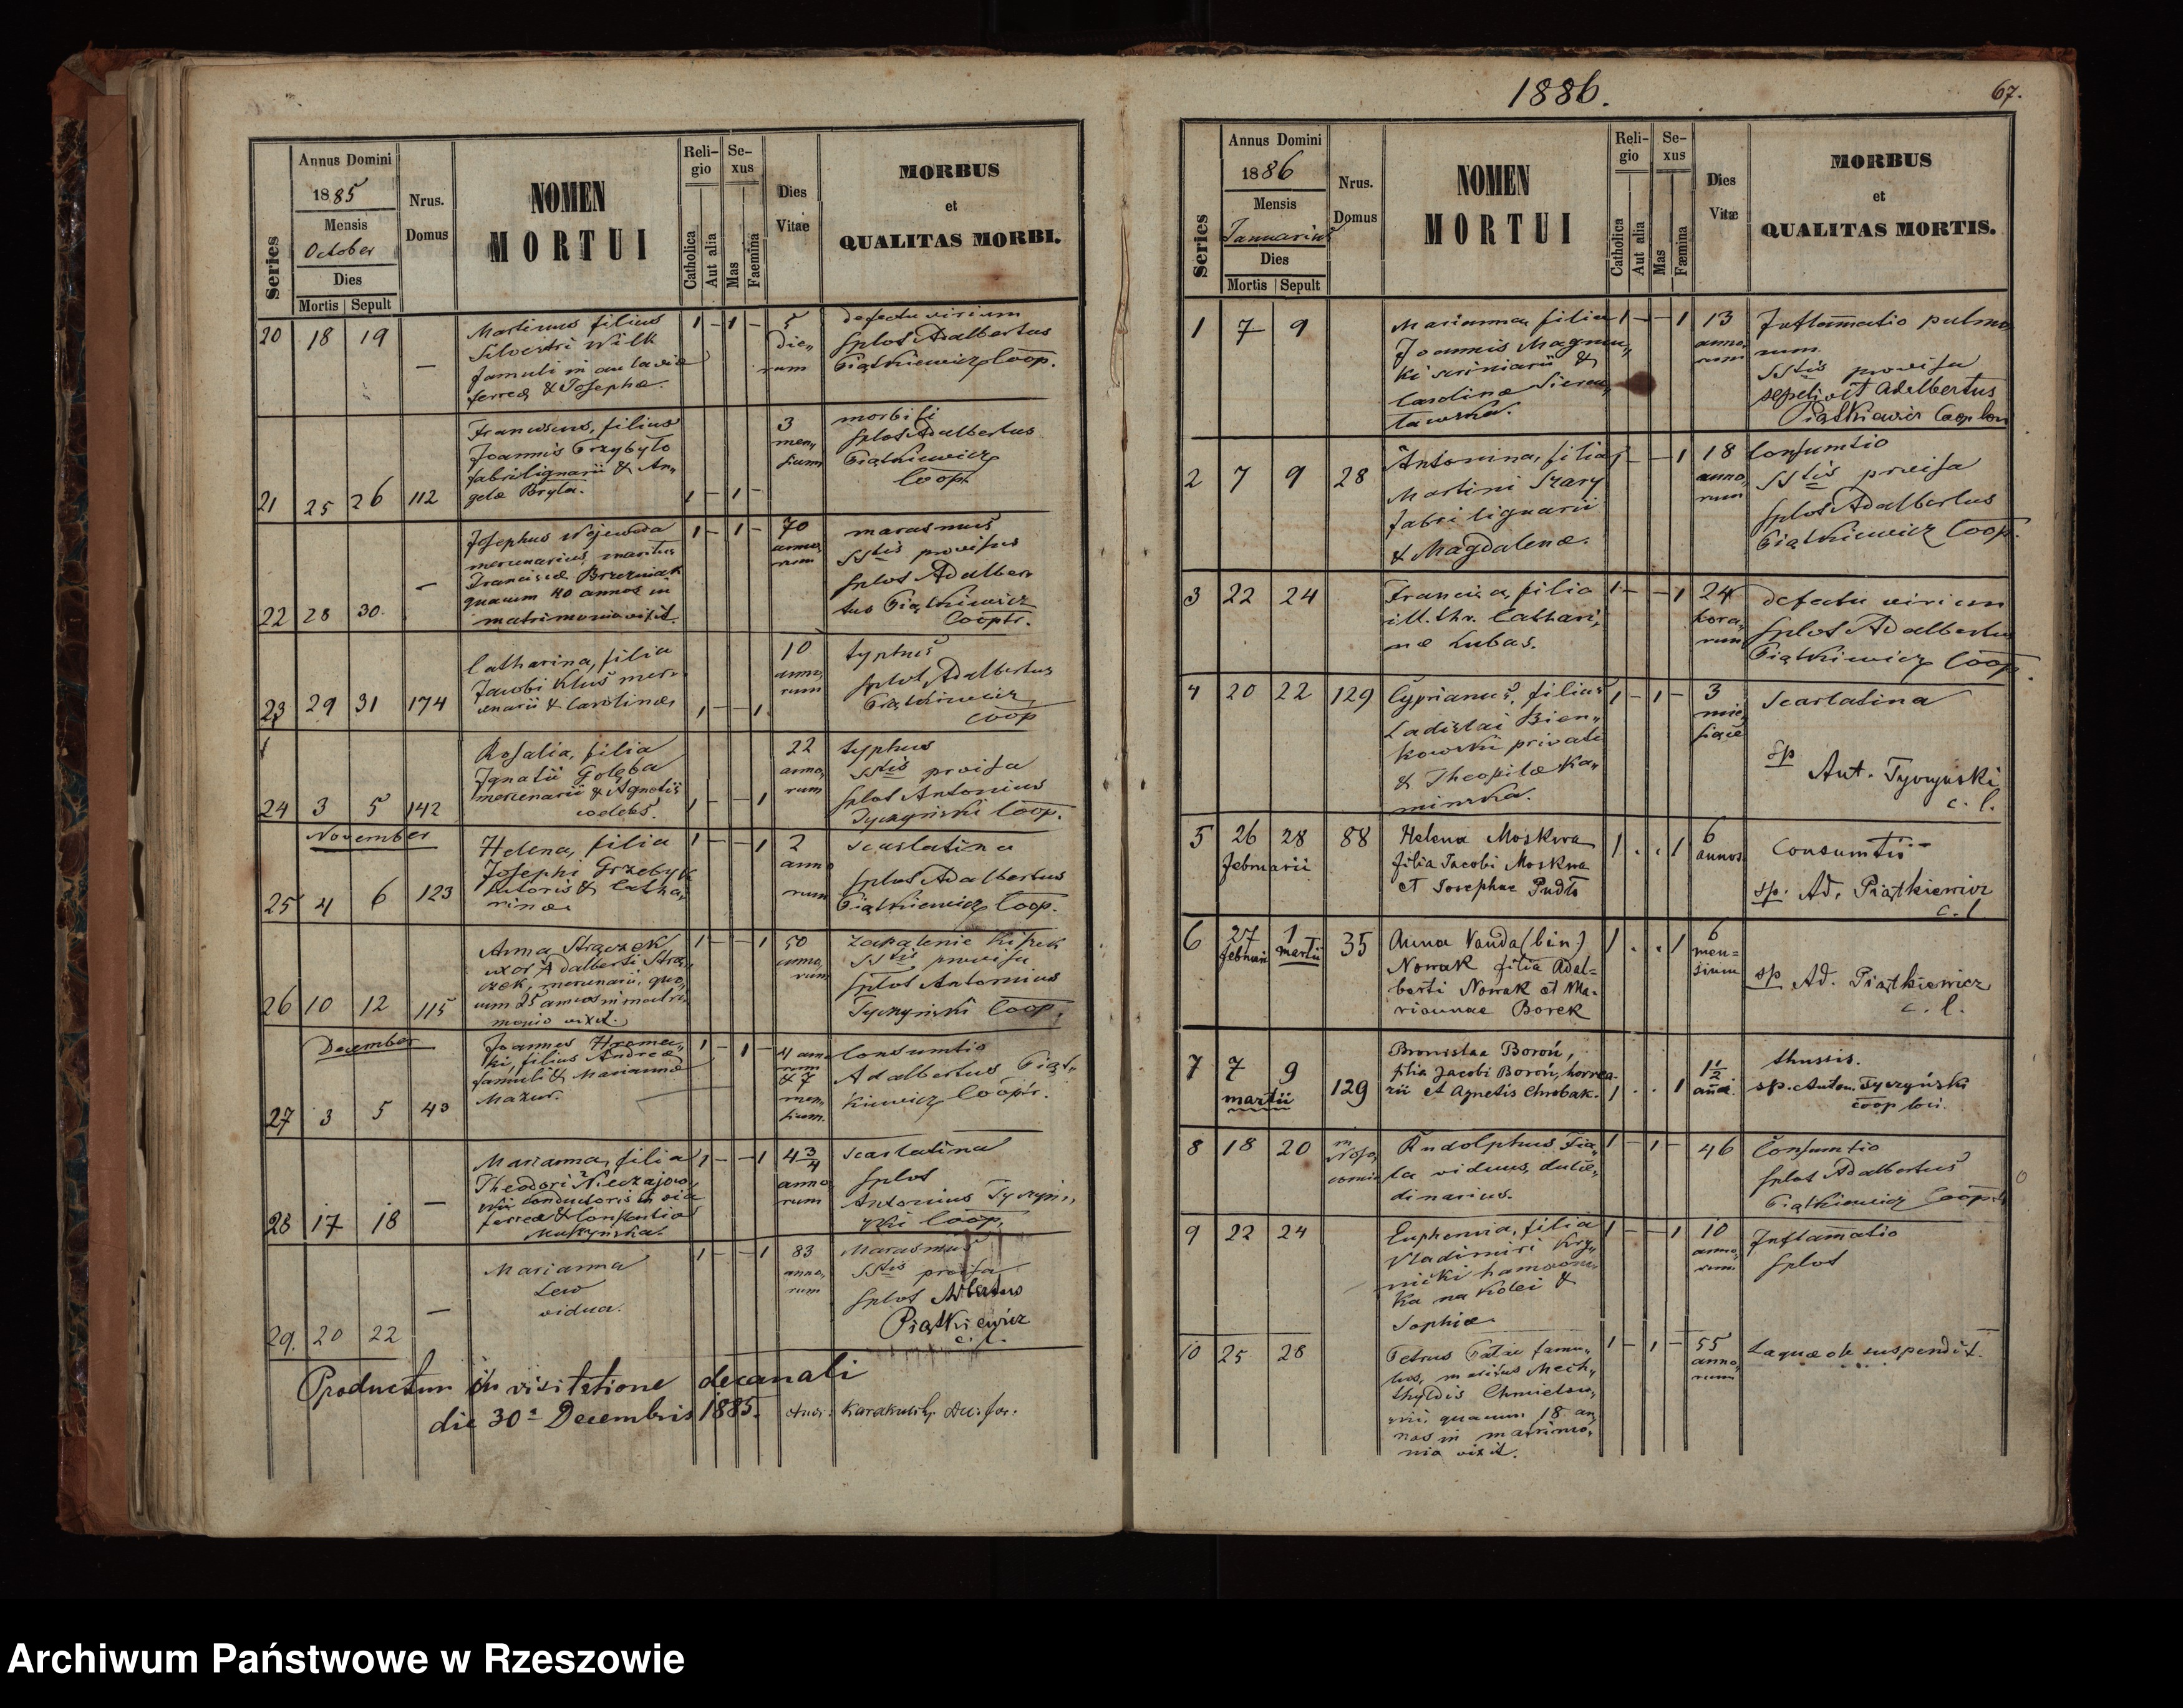 Annus Domini
1885
Mensis
October
Dies
Mortis Sepult
Series
Nrus.
Domus
NOMEN
MORTUI
Religio
Catholica
Aut alia
Sexus
Mas
Faemina
Dies
Vitae
MORBUS
et
QUALITAS MORBI.
20 18 19 — Martinus filius
Silvestri Wilk
famuli in aula via
ferrea & Josephæ.
1 – 1 – 5
dierum
defectu virium
splvt Adalbertus
Piątkiewicz Coop.
21 25 26 112
Franciscus, filius
Joannis Przybyło
fabri lignarii & An„
gelæ Bryla.
1 – 1 –
3
men„
sium
morbili
splvt Adalbertus
Piątkiewicz
Coop.
22 28 30. —
Josephus Wojewoda
mercenarius, maritus
Franciscæ Brzezniak
quacum 40 annos in
matrimonio vixit.
1 – 1 – 70
anno„
rum
marasmus
SStis provisus
splvt Adalber
tus Piątkiewicz
Cooptr.
23 29 31 174
Catharina, filia
Jacobi Kluś merc
enarii & Carolinæ
1 – – 1
10
anno„
rum
typhus
splvt Adalbertus
Piątkiewicz
coop
24 3 5 142
Rosalia, filia
Ignatii Gołęba
mercenarii & Agnetis
celebs.
1 – – 1
22
anno„
rum
typhus
SStis provisa
splvt Antonius
Tyczyński Coop.
November
25 4 6 123
Helena, filia
Josephi Grzebyk
sutoris & Catha„
rinæ
1 – – 1 2
anno
rum
scarlatina
splvt Adalbertus
Piątkiewicz Coop.
26 10 12 115
Anna Strączek
uxor Adalberti Strą„
czek, mercenarii, quo„
cum 25 annos in matri
monio vixit.
1 – – 1 50
anno„
rum
zapalenie kiszek
SStis provisa
splvt Antonius
Tyczyński Coop.
December
27 3 5 43
filius Andreæ
famuli & Mariannæ
Mazur.
1 – 1 – 4 anno
rum
& 7
men„
sium.
Consumtio
Adalbertus Piąt„
kiewicz Cooptr.
28 17 18 —
Marianna, filia
Theodori
conductoris in via
ferrea & Constantiæ
1 – – 1 4 3/4
anno
rum
scarlatina
splvt
Antonius Tyczyń„
ski Coop.
29. 20 22 —
Marianna
Lew
vidua.
1 – – 1 83
anno„
rum
Marasmus
SStis provisa
splvt Albertus
Piątkiewicz
c. l.
Productum in visitatione decanali
die 30a Decembris 1885.
1886.
67.
Annus Domini
1886
Mensis
Januarius
Dies
Mortis Sepult
Series
Nrus.
Domus
NOMEN
MORTUI
Religio
Catholica
Aut alia
Sexus
Mas
Fæmina
Dies
Vitæ
MORBUS
et
QUALITAS MORTIS.
1 7 9
Marianna, filia
Joannis Magnu„
ki scriniarii &
Carolinæ Sieru„
tawska.
1 – – 1 13
anno„
rum
Inflamatio pulmo
num.
SStis provisa
sepelivit Adelbertus
Piątkiewicz Coop loci
2 7 9 28
Antonina, filia
Martini Szary
fabri lignarii
& Magdalenæ.
1 – – 1 18
anno„
rum
Consumtio
SStis provisa
splvt Adalbertus
Piątkiewicz Coop.
3 22 24
Francisca, filia
ill. thr. Cathari„
næ Lubas.
1 – – 1 24
hora„
rum
defectu virium
splvt Adalbertus
Piątkiewicz Coop.
4 20 22 129
Cyprianus, filius
Ladislai Bien„
kowski privati
& Theophilæ Ka„
minska.
1 – 1 – 3
mie„
siące
Scarlatina
sp
Ant. Tyczyński
c. l.
5 26 28 88
februarii
Helena Moskwa
filia Jacobi Moskwa
et Josephae Pudło
1 . . 1 6
annos
Consumtio
sp. Ad. Piątkiewicz
c. l
6 27 1 35
februarii martii
Anna Vanda (bin.)
Nowak filia Adal=
berti Nowak et Ma-
riannae Borek
1 . . 1 6
men=
sium
sp Ad. Piątkiewicz
c. l.
7 7 9 129
martii
Bronislaa Boroń,
filia Jacobi Boroń, horrea-
rii et Agnetis Chrobak.
1 . . 1 1 1/2
anni.
thussis.
sp. Anton. Tyczyński
coop loci.
8 18 20
Rudolphus Fia„
la viduus,
dinarius.
1 – 1 – 46
Consumtio
splvt Adalbertus
Piątkiewicz Cooptr
9 22 24
Euphemia, filia
Vladimiri Kry„
nicki hamowni„
ka na kolei &
Sophiæ
1 – – 1 10
anno„
rum
Inflamatio
splvt
10 25 28
Petrus famu„
lus, maritus Mech„
thyldis
quacum 18 an
nos in matrimo„
nio vixit.
1 – 1 – 55
anno„
rum
Laqueo se suspendit.
Archiwum Państwowe w Rzeszowie